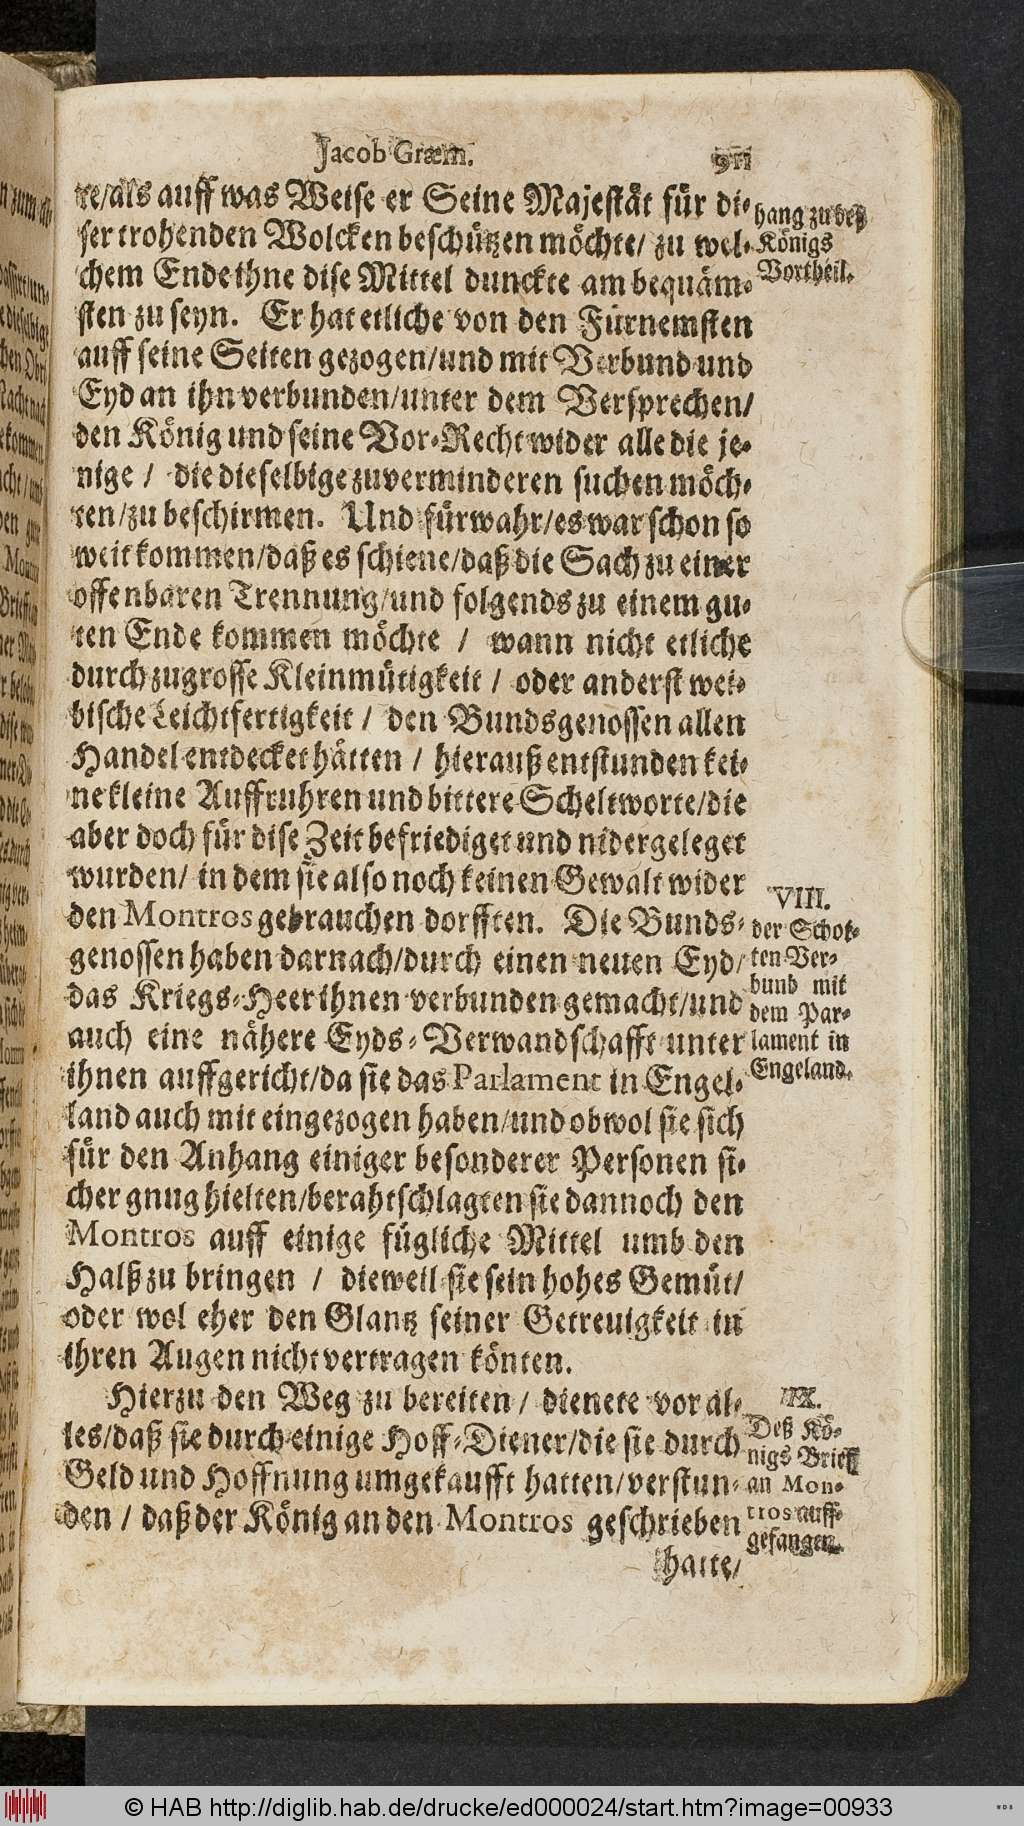 Jacob Græm. 911
re/als auff was Weise er Seine Majestät für di-
ser trohenden Wolcken beschützen möchte/ zu wel-
chem Ende ihne dise Mittel dunckte am bequäm-
sten zu seyn. Er hat etliche von den Fürnemsten
auff seine Seiten gezogen/und mit Verbund und
Eyd an ihn verbunden/unter dem Versprechen/
den König und seine Vor-Recht wider alle die je-
nige / die dieselbige zuverminderen suchen möch-
ten/zu beschirmen. Und fürwahr/es war schon so
weit kommen/daß es schiene/daß die Sach zu einer
offenbaren Trennung/und folgends zu einem gu-
ten Ende kommen möchte / wann nicht etliche
durch zugrosse Kleinmütigkeit / oder anderst wei-
bische Leichtfertigkeit / den Bundsgenossen allen
Handel entdecket hätten / hierauß entstunden kei-
ne kleine Auffruhren und bittere Scheltworte/die
aber doch für dise Zeit befriediget und nidergeleget
wurden/ in dem sie also noch keinen Gewalt wider
den Montros gebrauchen dorfften. Die Bunds-
genossen haben darnach/durch einen neuen Eyd/
das Kriegs-Heer ihnen verbunden gemacht/und
auch eine nähere Eyds-Verwandschafft unter
ihnen auffgericht/da sie das Parlament in Engel-
land auch mit eingezogen haben/und obwol sie sich
für den Anhang einiger besonderer Personen si-
cher gnug hielten/berahtschlagten sie dannoch den
Montros auff einige fügliche Mittel umb den
Halß zu bringen / dieweil sie sein hohes Gemüt/
oder wol eher den Glantz seiner Getreuigkeit in
ihren Augen nicht vertragen könten.
Hierzu den Weg zu bereiten / dienete vor al-
les/daß sie durch einige Hoff-Diener/die sie durch
Geld und Hoffnung umgekaufft hatten/verstun-
den / daß der König an den Montros geschrieben
hatte/
hang zu deß
Königs
Vortheil.
VIII.
der Schot-
ten Ver-
bund mit
dem Par-
lament in
Engeland.
IX.
Deß Kö-
nigs Brieff
an Mon-
tros auff-
gefangen.
© HAB http://diglib.hab.de/drucke/ed000024/start.htm?image=00933